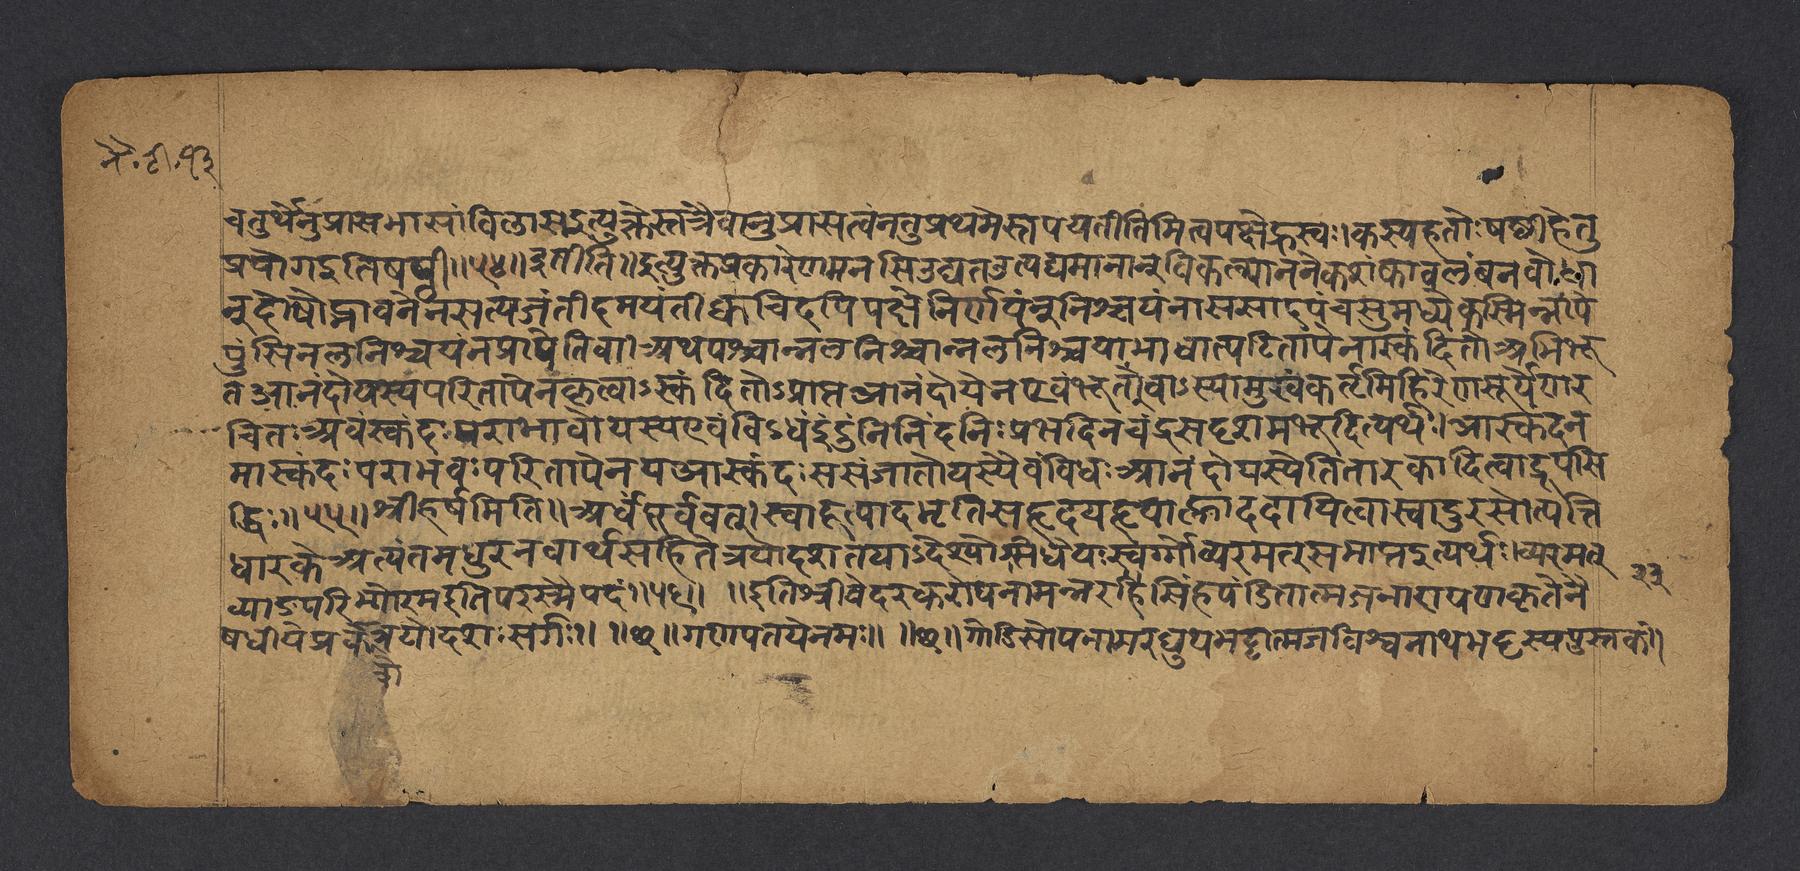 नै. टी. १३
चतुर्थेनुप्रासभासां विलासइत्युक्तेस्तत्रैवानुप्रासत्वं ननु प्रथमे स्ताप यतीतिमित्वपक्षे ह्रस्वः। कस्य हेतोः षष्ठीहेतु
प्रयोगइतिषष्ठी॥५४॥इतीति॥इत्युक्तप्रकारेणमनसिउद्यतउत्पद्यमानानुविकल्पाननैकशंकावलंबनवो
नुदेषोह्नावनेननसत्यजंतीदमयंती क्वचिदपिपक्षे निर्णयंनुनिश्चयंनाससादपंचसुमध्येकस्मिन्नपि
पुंसिनलनिश्चयंनप्रापेतिवा।अथपश्चान्नलनिश्चान्नलनिश्चयाभावात्पटितापेनास्कंदिता
तआनंदोयस्यपरितापेनकृत्वाऽस्कंदितोऽप्राप्तआनंदोयेनएवंभूतोवाऽस्यामुखंकर्तृमिहिरेणसूर्येणर
चितःअवस्कंदःपराभावोयस्यएवंविऽधंइंदुंनिनिंदनिःप्रभदिनचंद्रसदृशमभूदित्यर्थः।आस्कंदन
मास्कंदःपराभवःपरितापेनयआस्कंदःससंजातोयस्यैवंविधःआनंदोयस्येतितारकादित्वाद्रूपसि
द्धिः॥५५॥श्रीहर्षमिति॥अर्धंपूर्ववत्।स्वादूत्पादभृतिसहृदयहृद्याल्हाददायित्वास्वादुरसोत्पत्ति
धारकेअत्यंतमधुरनवार्थसहितेत्रयोदशतयाऽदेश्योसिधेयःस्वर्गोव्यरमत्समाप्तइत्यर्थः।व्यरमत्
व्याङ्परिभ्योरमइतिपरस्मैपदं॥५६॥ ॥इतिश्रीवेदरकरोपनामन्नरहिसिंहपंडितात्मजनारायणकृतेनै
षधीयेप्रकाशेत्रयोदशःसर्गः॥ ॥छ॥गणपतयेनमः॥ ॥छ॥गोडसोपनामरघुपभट्टात्मजविश्वनाथभट्टस्यपुस्तकं॥